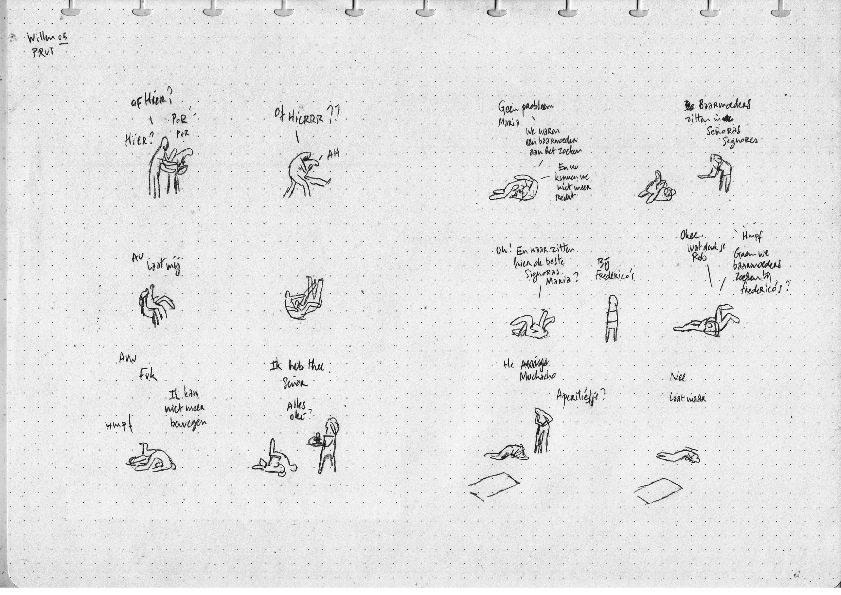 Willem 08
PRUT
OF HIER?
POR
POR
HIER?
Of HIERRR??
AH
Au
Laat mij
Auw
Fuk
Ik kan
niet meer
bewegen
HMPf
Ik heb thee
Señor
Alles
oké?
Geen probleem
Maria
We waren
een baarmoeder
aan het zoeken
En nu
kunnen we
niet meer
recht
Baarmoeders
zitten in
Señoras
Segnores
Oh! En waar zitten
hier de beste
Signoras
Maria?
Bij
Frederico's
Okee
wat denk je
Rob
Hmpf
Gaan we
baarmoeders
zoeken bij
Frederico's?
He
Muchacho
Aperitiefje?
Nee
Laat maar